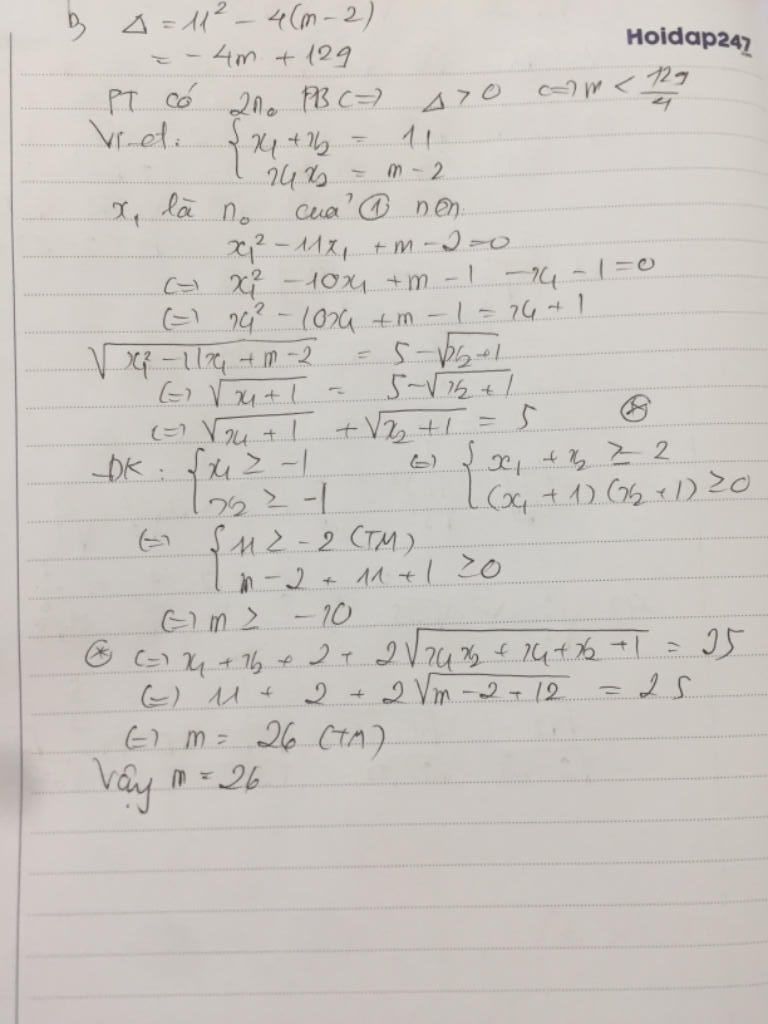 b) Δ = 11² - 4(m-2)
Hoidap247
= -4m + 129
PT có 2n₀ PB <=> Δ > 0 <=> m < 129/4
Vi-et: { x₁ + x₂ = 11
x₁x₂ = m - 2
x₁ là n₀ của ① nên
x₁² - 11x₁ + m - 2 = 0
<=> x₁² - 10x₁ + m - 1 - x₁ - 1 = 0
<=> x₁² - 10x₁ + m - 1 = x₁ + 1
√(x₁² - 11x₁ + m - 2) = 5 - √(x₂ + 1)
<=> √(x₁ + 1) = 5 - √(x₂ + 1)
<=> √(x₁ + 1) + √(x₂ + 1) = 5 ⊛
ĐK: { x₁ ≥ -1 <=> { x₁ + x₂ ≥ 2
x₂ ≥ -1 (x₁ + 1)(x₂ + 1) ≥ 0
<=> { 11 ≥ -2 (TM)
m - 2 + 11 + 1 ≥ 0
<=> m ≥ -10
⊛ <=> x₁ + x₂ + 2 + 2√(x₁x₂ + x₁ + x₂ + 1) = 25
<=> 11 + 2 + 2√(m - 2 + 12) = 25
<=> m = 26 (TM)
Vậy m = 26